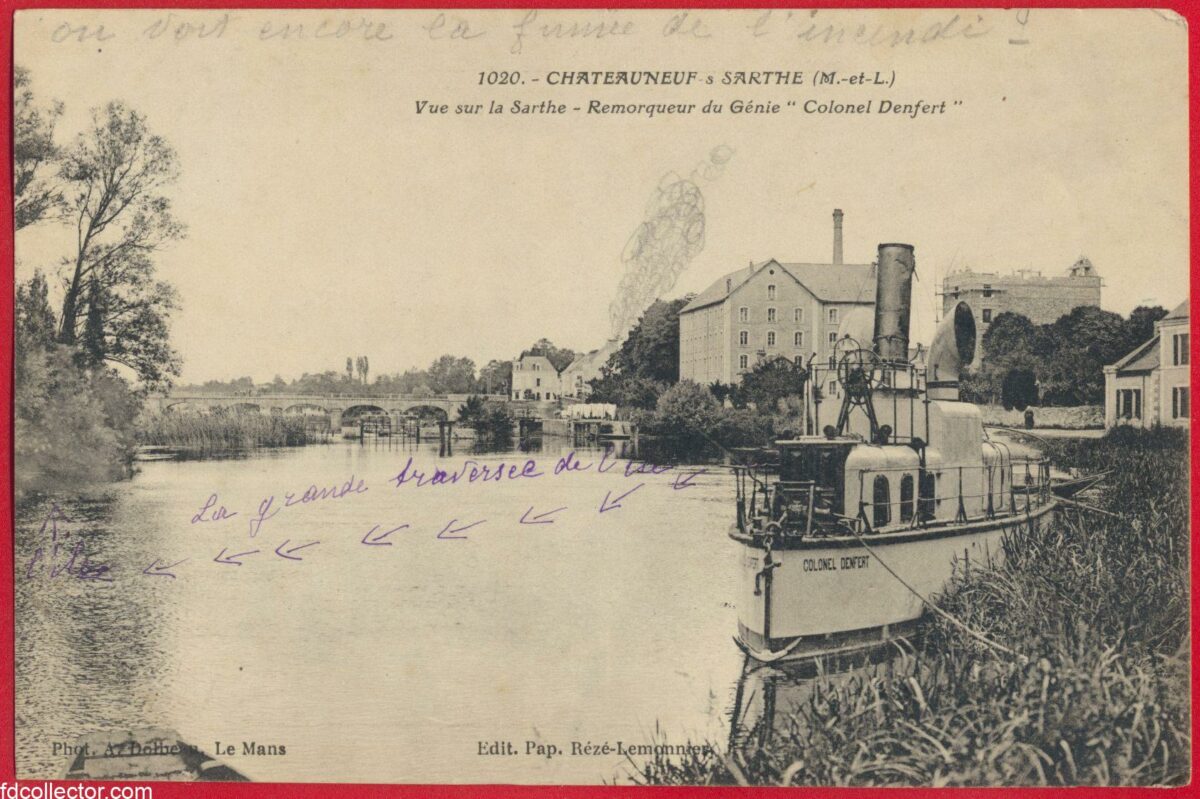 on voit encore la fumée de l'incendi !
1020. - CHATEAUNEUF-s SARTHE (M.-et-L.)
Vue sur la Sarthe - Remorqueur du Génie " Colonel Denfert "
La grande traversée de
l'île
COLONEL DENFERT
Phot. A. Dolbeau, Le Mans
Edit. Pap. Rézé-Lemonnier
fdcollector.com